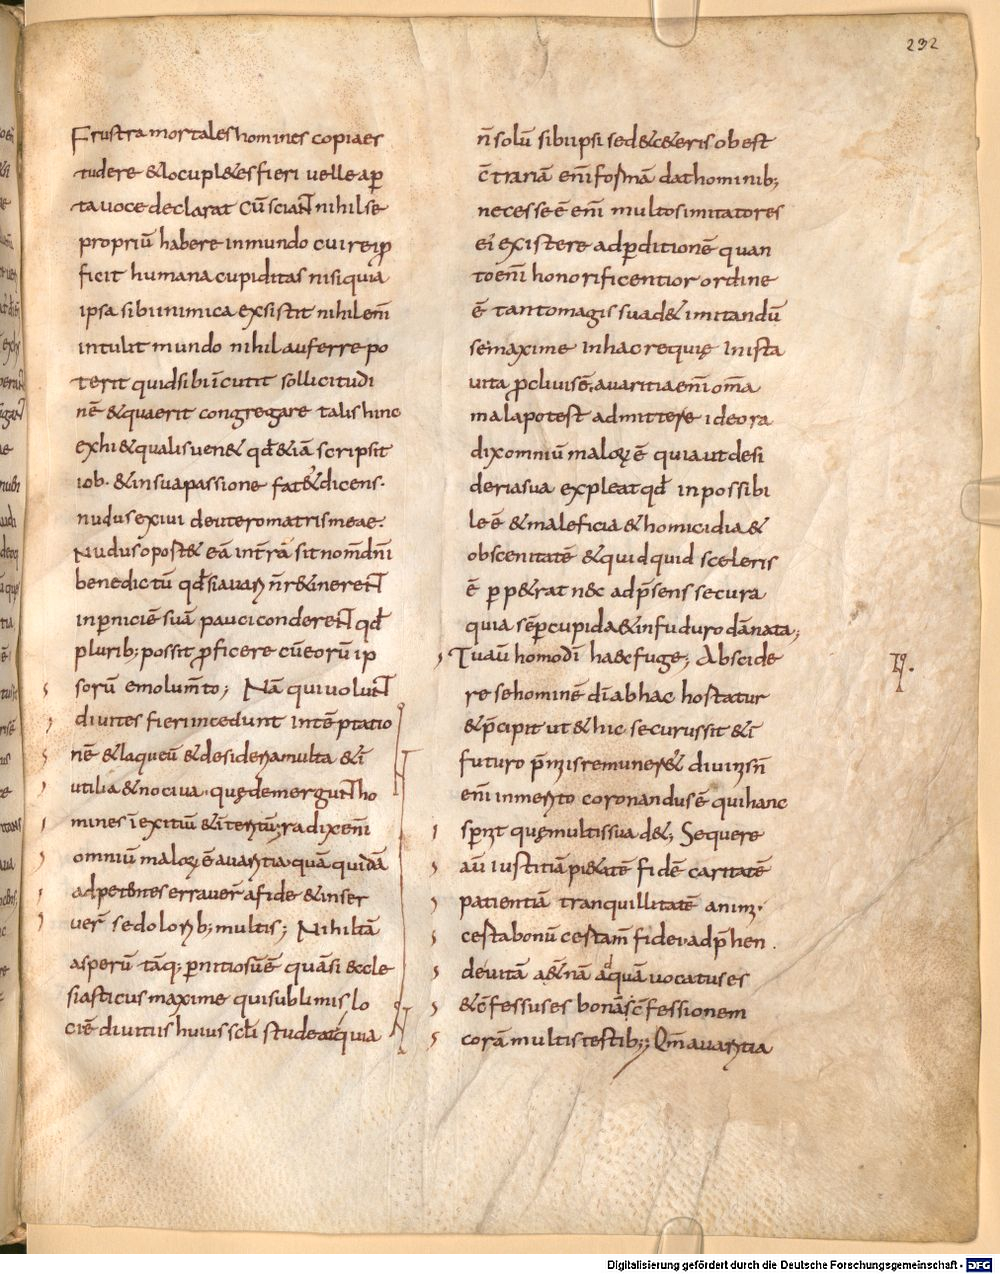 232
Frustra mortales homines copiaes
tudere &locupl&es fieri velle ap̄
ta voce declarat cū scian̄t nihil se
propriū habere in mundo cui rei p̄
ficit humana cupiditas nisi quia
ipsa sibi inimica exsistit nihil enī
intulit mundo nihil auferre po
terit quid sibi īcutit sollicitudi
nē &quaerit congregare talis hinc
exhi& qualis ven& qđ &iā scripsit
iob· &in sua passione fat& dicens·
nudus exivi de utero matris meae·
Nudus oport& eā intrā sit nom̄ dn̄i
benedictū qđ si avari n̄ r&iner̄ent
in p̄niciē suā pauci conderent qđ
plurib; possit p̄ficere cū eorū ip
sorū emolum̄to; Nā qui volunt
divites fieri incedunt in tēptatio
nē &laqueū &desideria multa &ī
utilia &nociva· quę demergunt ho
mines ī exitiū &īteritū; radix enī
omniū maloꝝ ē avaritia quā quidā
adpetentes erraver̄ a fide &inser
ver̄ se dolorib; multis; Nihil tā
asperū tāq; p̄nitiosū ē quā si eccle
siasticus maxime qui sublimis lo
ciē divitiis huius scl̄i studeat quia
n̄ solū sibi ipsi sed &c&eris obest
c̄trariā enī formā dat hominib;
necesse ē enī multos imitatores
ei existere ad p̄ditionē quan
to enī honorificentior ordine
ē tanto magis suad& imitandū
se maxime in hac requię in ista
vita p̄clivis ē, avaritia enī om̄a
mala potest admittere ideo ra
dix omniū maloꝝ ē quia ut desi
deria sua expleat qđ inpossibi
le ē &maleficia &homicidia &
obscenitatē &quidquid sceleris
ē p̄p&rat nec ad p̄sens secura
quia sēp̄ cupida &in futuro dānata;
Tu aū homo dī haec fuge; Abscide
re se hominē dī ab hac hostatur
&p̄cipit ut &hic securus sit &ī
futuro p̄miis remuner&& divi
enī inmerito coronandus ē qui hanc
spn̄it quę multis suad&; Sequere
aū iustitiā pi&atē fidē caritatē
patientiā tranquillitatē animi·
certa bonū certam̄ fidei adp̄hen
de vitā a&nā ad quā vocatus es
&c̄fessus es bonā c̄fessionem
corā multis testib;; Qm̄ avaritia
Digitalisierung gefördert durch die Deutsche Forschungsgemeinschaft - DFG